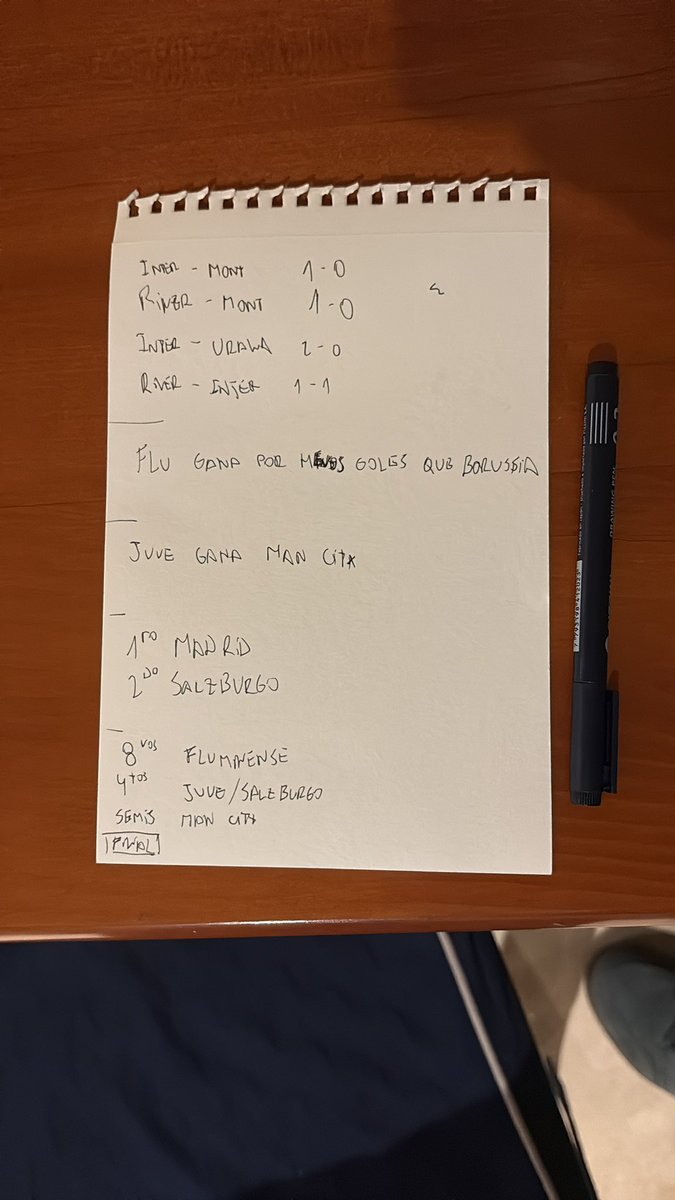 INTER - MONT 1 - 0
RIVER - MONT 1 - 0
INTER - URAWA 2 - 0
RIVER - INTER 1 - 1
FLU GANA POR MENOS GOLES QUE BORUSSIA
JUVE GANA MAN CITY
1RO MADRID
2DO SALZBURGO
8VOS FLUMINENSE
4TOS JUVE/SALZBURGO
SEMIS MAN CITY
FINAL
DRAWING PEN